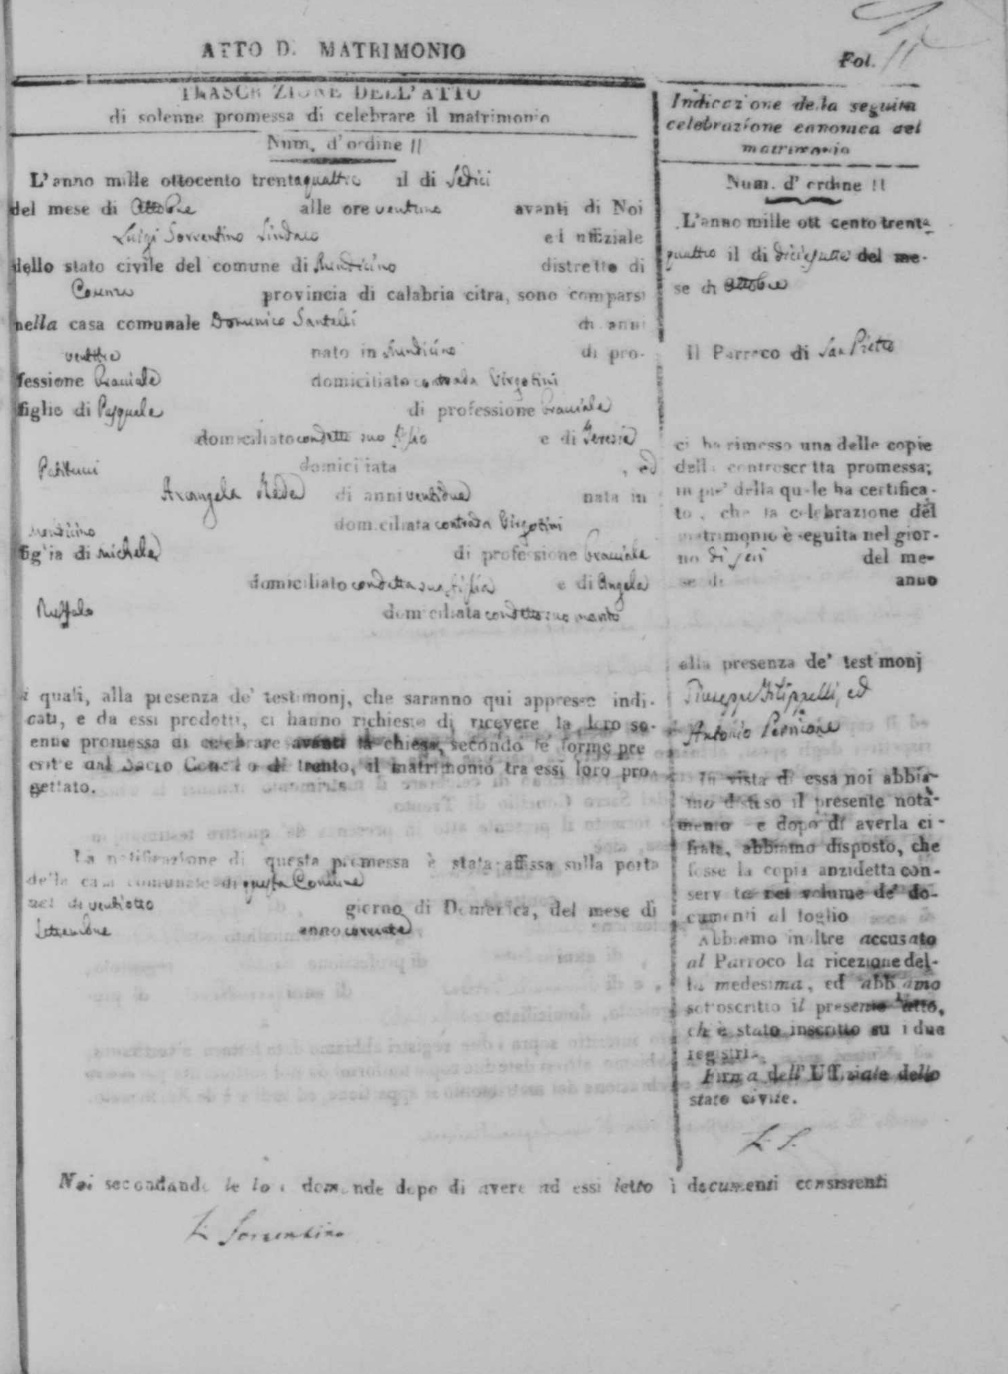 ATTO DI MATRIMONIO
Fol. 11
TRASCRIZIONE DELL'ATTO
di solenne promessa di celebrare il matrimonio
Num. d'ordine 11
L'anno mille ottocento trentaquattro il di Sedici
del mese di Ottobre alle ore ventuno avanti di Noi
Luigi Sorrentino Sindaco ed uffiziale
dello stato civile del comune di Mendicino distretto di
Cosenza provincia di calabria citra, sono comparsi
nella casa comunale Domenico Santelli di anni
ventitre nato in Mendicino di pro-
fessione Bracciale domiciliato contrada Virgotini
figlio di Pasquale di professione Bracciale
domiciliato con detto suo figlio e di Teresa
Petitucci domiciliata , ed
Arcangela Reda di anni ventidue nata in
Mendicino domiciliata contrada Virgotini
figlia di Michele di professione Bracciale
domiciliato con detta sua figlia e di Angela
Ruffolo domiciliata con detto suo marito
i quali, alla presenza de' testimonj, che saranno qui appresso indi-
cati, e da essi prodotti, ci hanno richiesto di ricevere la loro so-
enne promessa di celebrare avanti la chiesa, secondo le forme pre
critte dal Sacro Concilio di trento, il matrimonio tra essi loro pro
gettato.
La notificazione di questa promessa è stata affissa sulla porta
della casa comunale di questa Comune
nel di ventiotto giorno di Domenica, del mese di
Settembre anno corrente
Indicazione della seguita
celebrazione canonica del
matrimonio
Num. d' ordine 11
L'anno mille ottocento trenta-
quattro il di diciasette del me-
se di Ottobre
Il Parroco di San Pietro
ci ha rimesso una delle copie
della controscritta promessa;
in pie' della quale ha certifica-
to, che la celebrazione del
matrimonio è seguita nel gior-
no di jeri del me-
se di anno
alla presenza de' testimonj
Giuseppe Filippelli, ed
Antonio Perrione
In vista di essa noi abbia-
mo disteso il presente nota-
mento e dopo di averla ci-
frata, abbiamo disposto, che
fosse la copia anzidetta con-
servata nel volume de' do-
cumenti al foglio
Abbiamo inoltre accusato
al Parroco la ricezione del-
la medesima, ed abbiamo
sottoscritto il presente atto,
ch'è stato inscritto su i due
registri.
Firma dell'Uffiziale dello
stato civile.
L. S.
Noi secondando le loro domande dopo di avere ad essi letto i documenti consistenti
L. Sorrentino